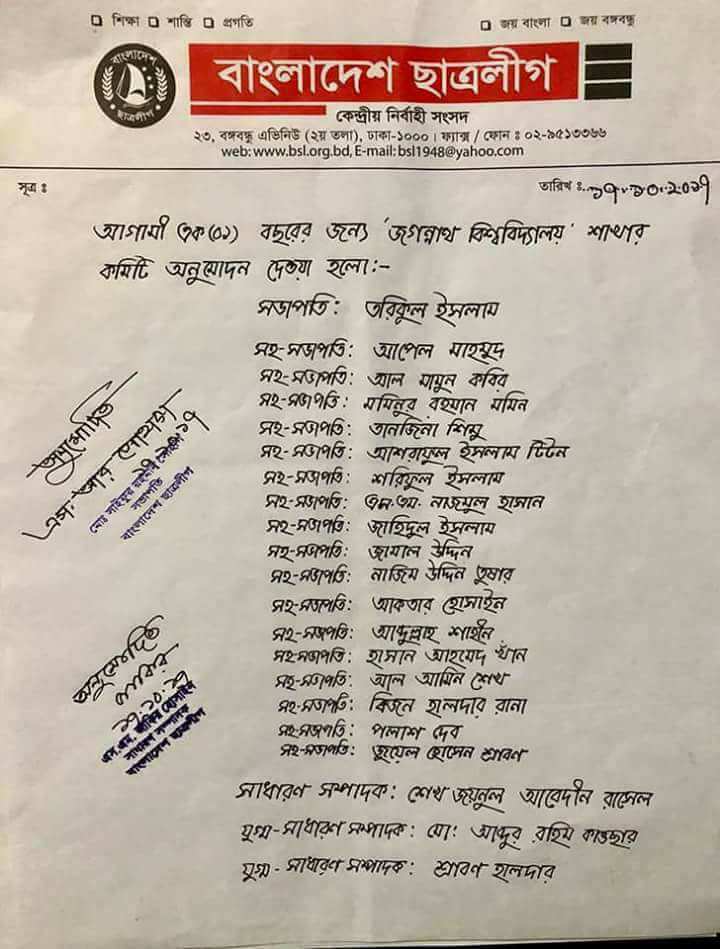 শিক্ষা শান্তি প্রগতি
জয় বাংলা জয় বঙ্গবন্ধু
বাংলাদেশ
ছাত্রলীগ
বাংলাদেশ ছাত্রলীগ
কেন্দ্রীয় নির্বাহী সংসদ
২৩, বঙ্গবন্ধু এভিনিউ (২য় তলা), ঢাকা-১০০০। ফ্যাক্স / ফোন ঃ ০২-৯৫১৩৩৬৬
web: www.bsl.org.bd, E-mail: bsl1948@yahoo.com
সূত্র ঃ
তারিখ ঃ ১৭.১০.২০১৭
আগামী এক (০১) বছরের জন্য 'জগন্নাথ বিশ্ববিদ্যালয়' শাখার
কমিটি অনুমোদন দেওয়া হলো:-
সভাপতি: তরিকুল ইসলাম
সহ-সভাপতি: আপেল মাহমুদ
সহ-সভাপতি: আল মামুন কবির
সহ-সভাপতি: মমিনুর রহমান মমিন
সহ-সভাপতি: তানজিনা শিমু
সহ-সভাপতি: আশরাফুল ইসলাম টিটন
সহ-সভাপতি: শরিফুল ইসলাম
সহ-সভাপতি: এম.এম. নাজমুল হাসান
সহ-সভাপতি: জাহিদুল ইসলাম
সহ-সভাপতি: জামাল উদ্দিন
সহ-সভাপতি: নাজিম উদ্দিন তুষার
সহ-সভাপতি: আকতার হোসাইন
সহ-সভাপতি: আব্দুল্লাহ শাহীন
সহ-সভাপতি: হাসান আহমেদ খাঁন
সহ-সভাপতি: আল আমিন শেখ
সহ-সভাপতি: বিজন হালদার রানা
সহ-সভাপতি: পলাশ দেব
সহ-সভাপতি: জুয়েল হোসেন শ্রাবণ
সাধারণ সম্পাদক: শেখ জয়নুল আবেদীন রাসেল
যুগ্ম-সাধারণ সম্পাদক: মো: আব্দুর রহিম কাওছার
যুগ্ম-সাধারণ সম্পাদক: শ্রাবণ হালদার
অনুমোদিত
এস. আর সোহাগ
মোঃ সাইফুর রহমান সোহাগ
সভাপতি
বাংলাদেশ ছাত্রলীগ
অনুমোদিত
জাকির
১৭.১০.১৭
এস.এম. জাকির হোসাইন
সাধারণ সম্পাদক
বাংলাদেশ ছাত্রলীগ